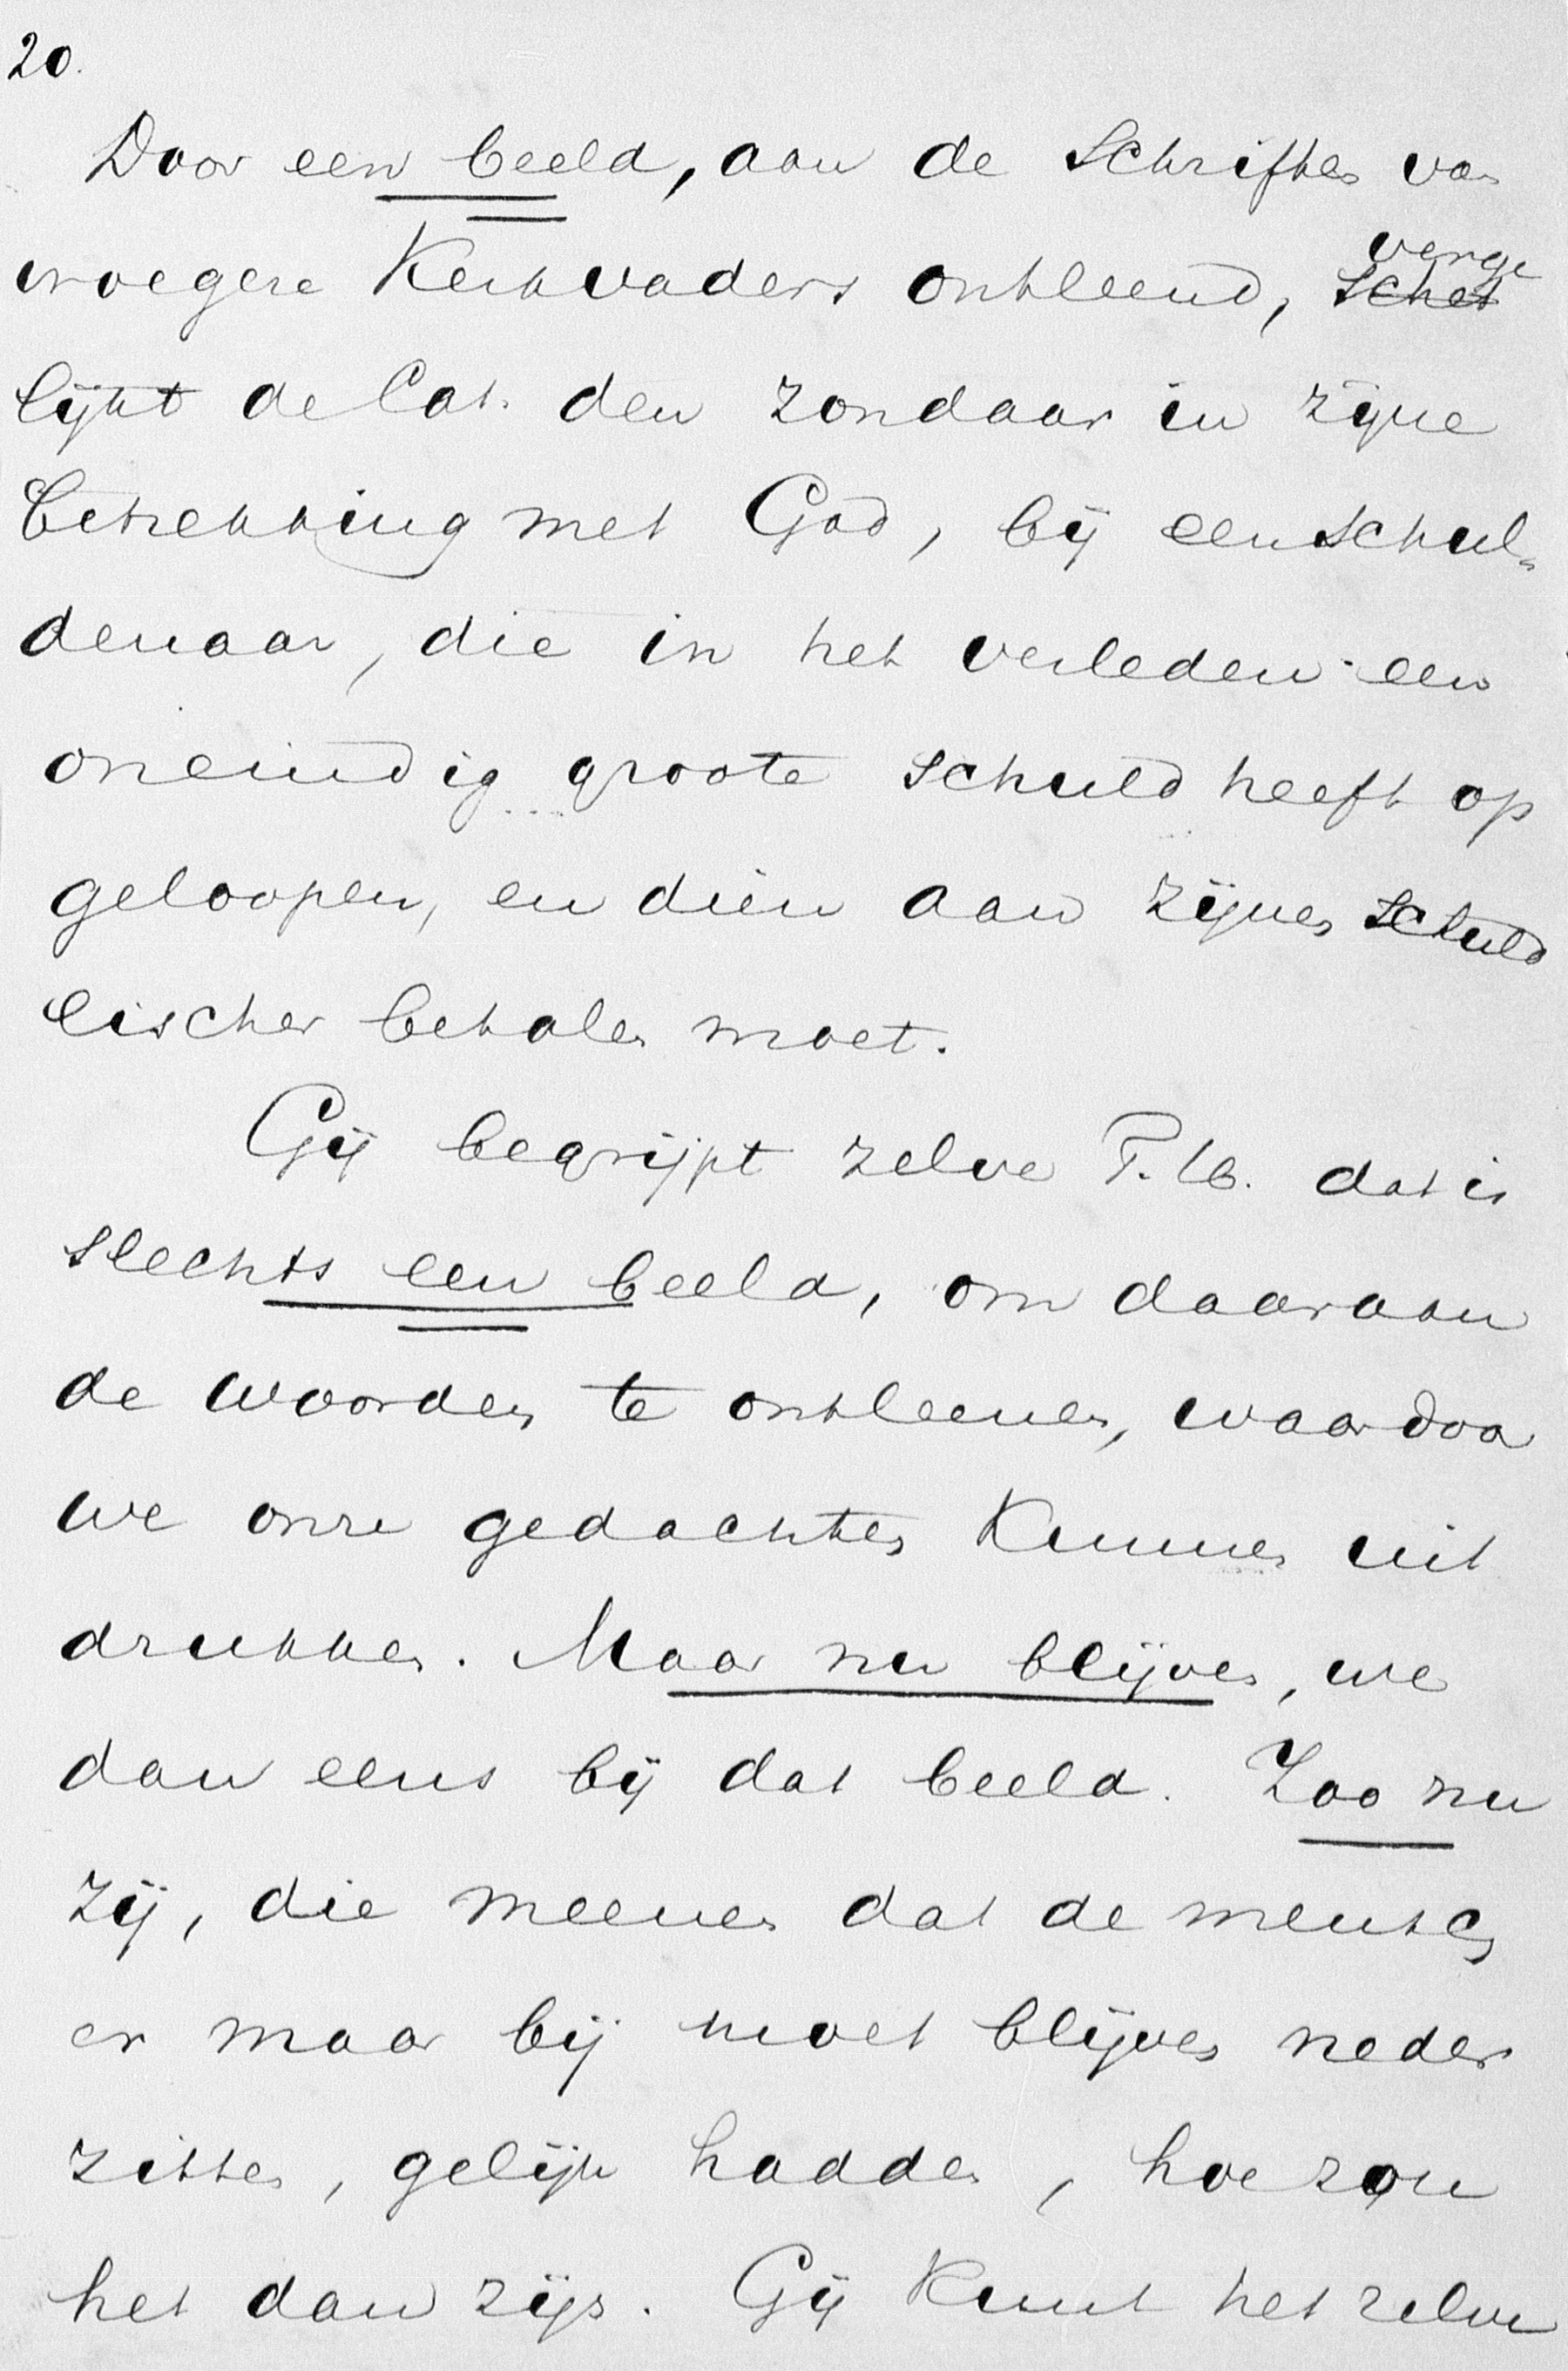 20.
Door een beeld, aan de Schriften van
vroegere Kerkvaders ontleend, schet verge
lijkt de Cat. den zondaar in zijne
betrekking met God, bij een schul-
denaar, die in het verleden een
oneindig groote schuld heeft op
geloopen, en dien aan zijnen schuld
eischer betalen moet.
Gij begrijpt zelve dat is
slechts een beeld, om daaraan
de woorden te ontleenen, waardoor
we onze gedachten kunnen uit
drukken. Maar nu blijven, we
dan eens bij dat beeld. Zoo nu
zij, die meenen dat de mensch
er maar bij moet blijven neder
zitten, gelijk hadden, hoe zou
het dan zijn. Gij kunt het zelve